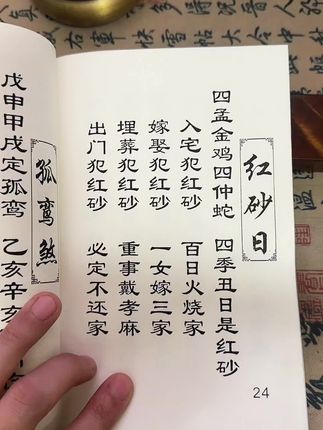 红砂日
四孟金鸡四仲蛇 四季丑日是红砂
入宅犯红砂 百日火烧家
嫁娶犯红砂 一女嫁三家
埋葬犯红砂 重事戴孝麻
出门犯红砂 必定不还家
24
孤鸾煞
戊申甲戌定孤鸾 乙亥辛亥
右軍快雪帖大令中